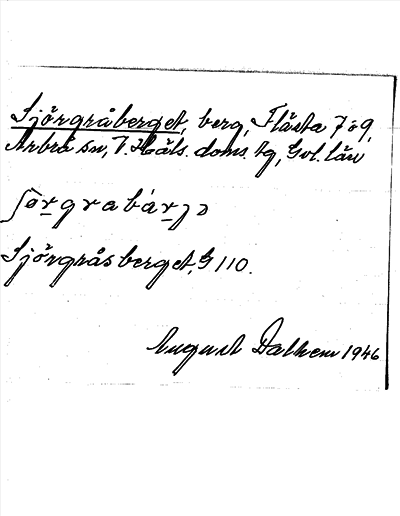 Sjörgråberget, berg, Flästa 7 o 9,
Arbrå sn, V. Häls. doms. tg, Gvl. län
ʃørgrabárjə
Sjörgråsberget, G 110.
August Dalhem 1946